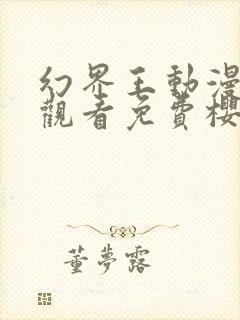 幻界王動漫
觀看免費櫻
董夢露